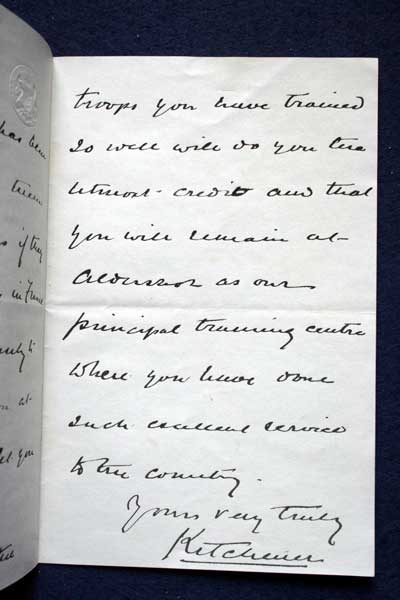 has been
them
s if they
s in
at
you
troops you have trained
so well will do you the
utmost credit and that
you will remain at
Aldershot as our
principal training centre
where you have done
such excellent service
to the country.
Yours very truly
Kitchener